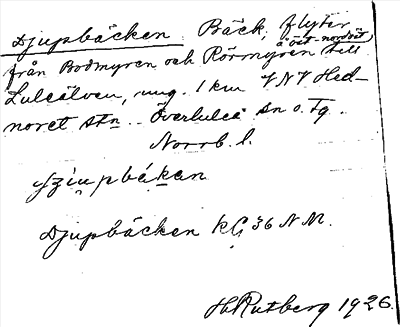 Djupbäcken. Bäck, flyter
å öst-nordöst,
från Bodmyren och Rörmyren till
Luleälven, ung. 1 km VNV Hed-
noret stn.. Överluleå sn o. tg.
Norrb. l.
Djupbäcken KG 36 NM.
H Rutberg 1926.